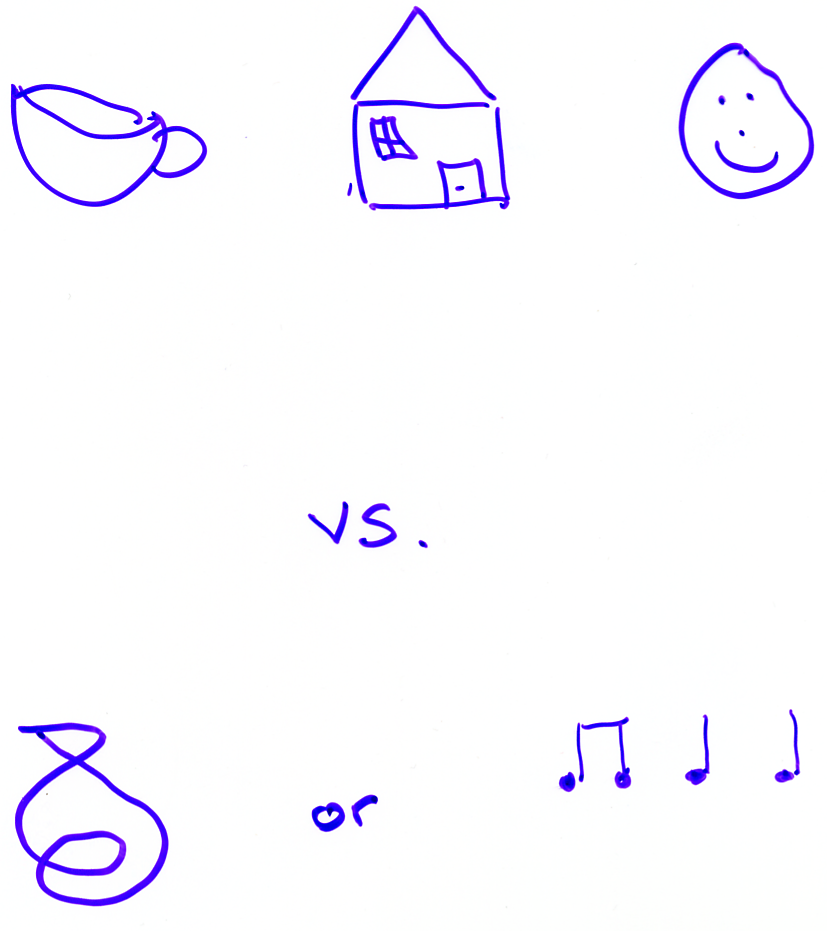 vs.
or